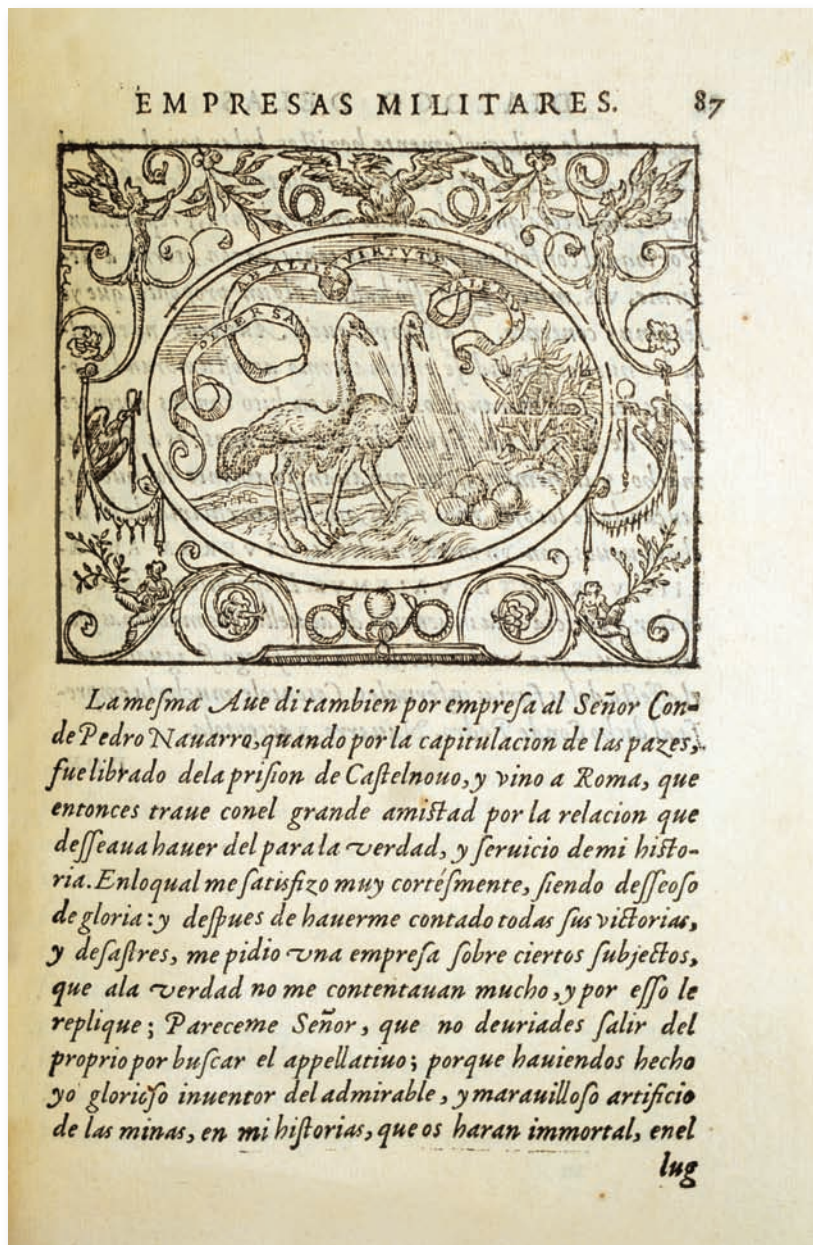 EMPRESAS MILITARES. 87
DIVERSA
AB ALIIS VIRTVTE
VALEMVS
La mesma Aue di tambien por empresa al Señor Con-
de Pedro Nauarro, quando por la capitulacion de las pazes,
fue librado dela prision de Castelnouo, y vino a Roma, que
entonces traue conel grande amistad por la relacion que
desseaua hauer del para la verdad, y seruicio demi histo-
ria. Enloqual me satisfizo muy cortésmente, siendo desseoso
de gloria: y despues de hauerme contado todas sus victorias,
y desastres, me pidio vna empresa sobre ciertos subjectos,
que ala verdad no me contentauan mucho, y por esso le
replique; Pareceme Señor, que no deuriades salir del
proprio por buscar el appellatiuo; porque hauiendos hecho
yo glorioso inuentor del admirable, y marauilloso artificio
de las minas, en mi historias, que os haran immortal, enel
lug